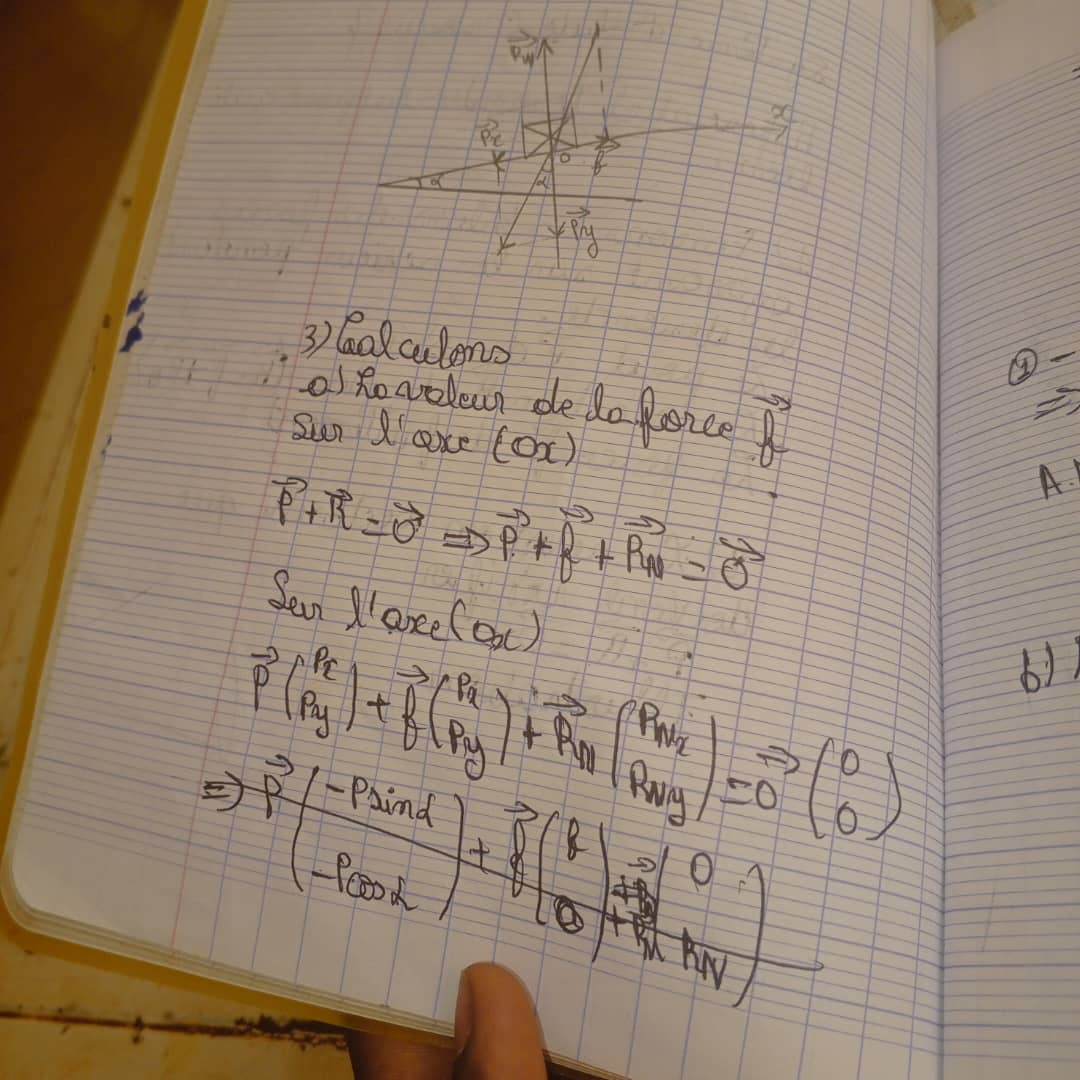 R⃗N
x
P⃗x
O
f⃗
α
α
P⃗y
3) Calculons
a) La valeur de la force f⃗
Sur l'axe (Ox)
P⃗ + R⃗ = 0⃗ ⇒ P⃗ + f⃗ + R⃗N = 0⃗
Sur l'axe (Ox)
P⃗ (Px Py) + f⃗ (Px Py) + R⃗N (RNx RNy) = 0⃗ (0 0)
⇒ P⃗ (-Psinα -Pcosα) + f⃗ (f 0) + R⃗N (0 RN)
① -
⇒
A.
b)